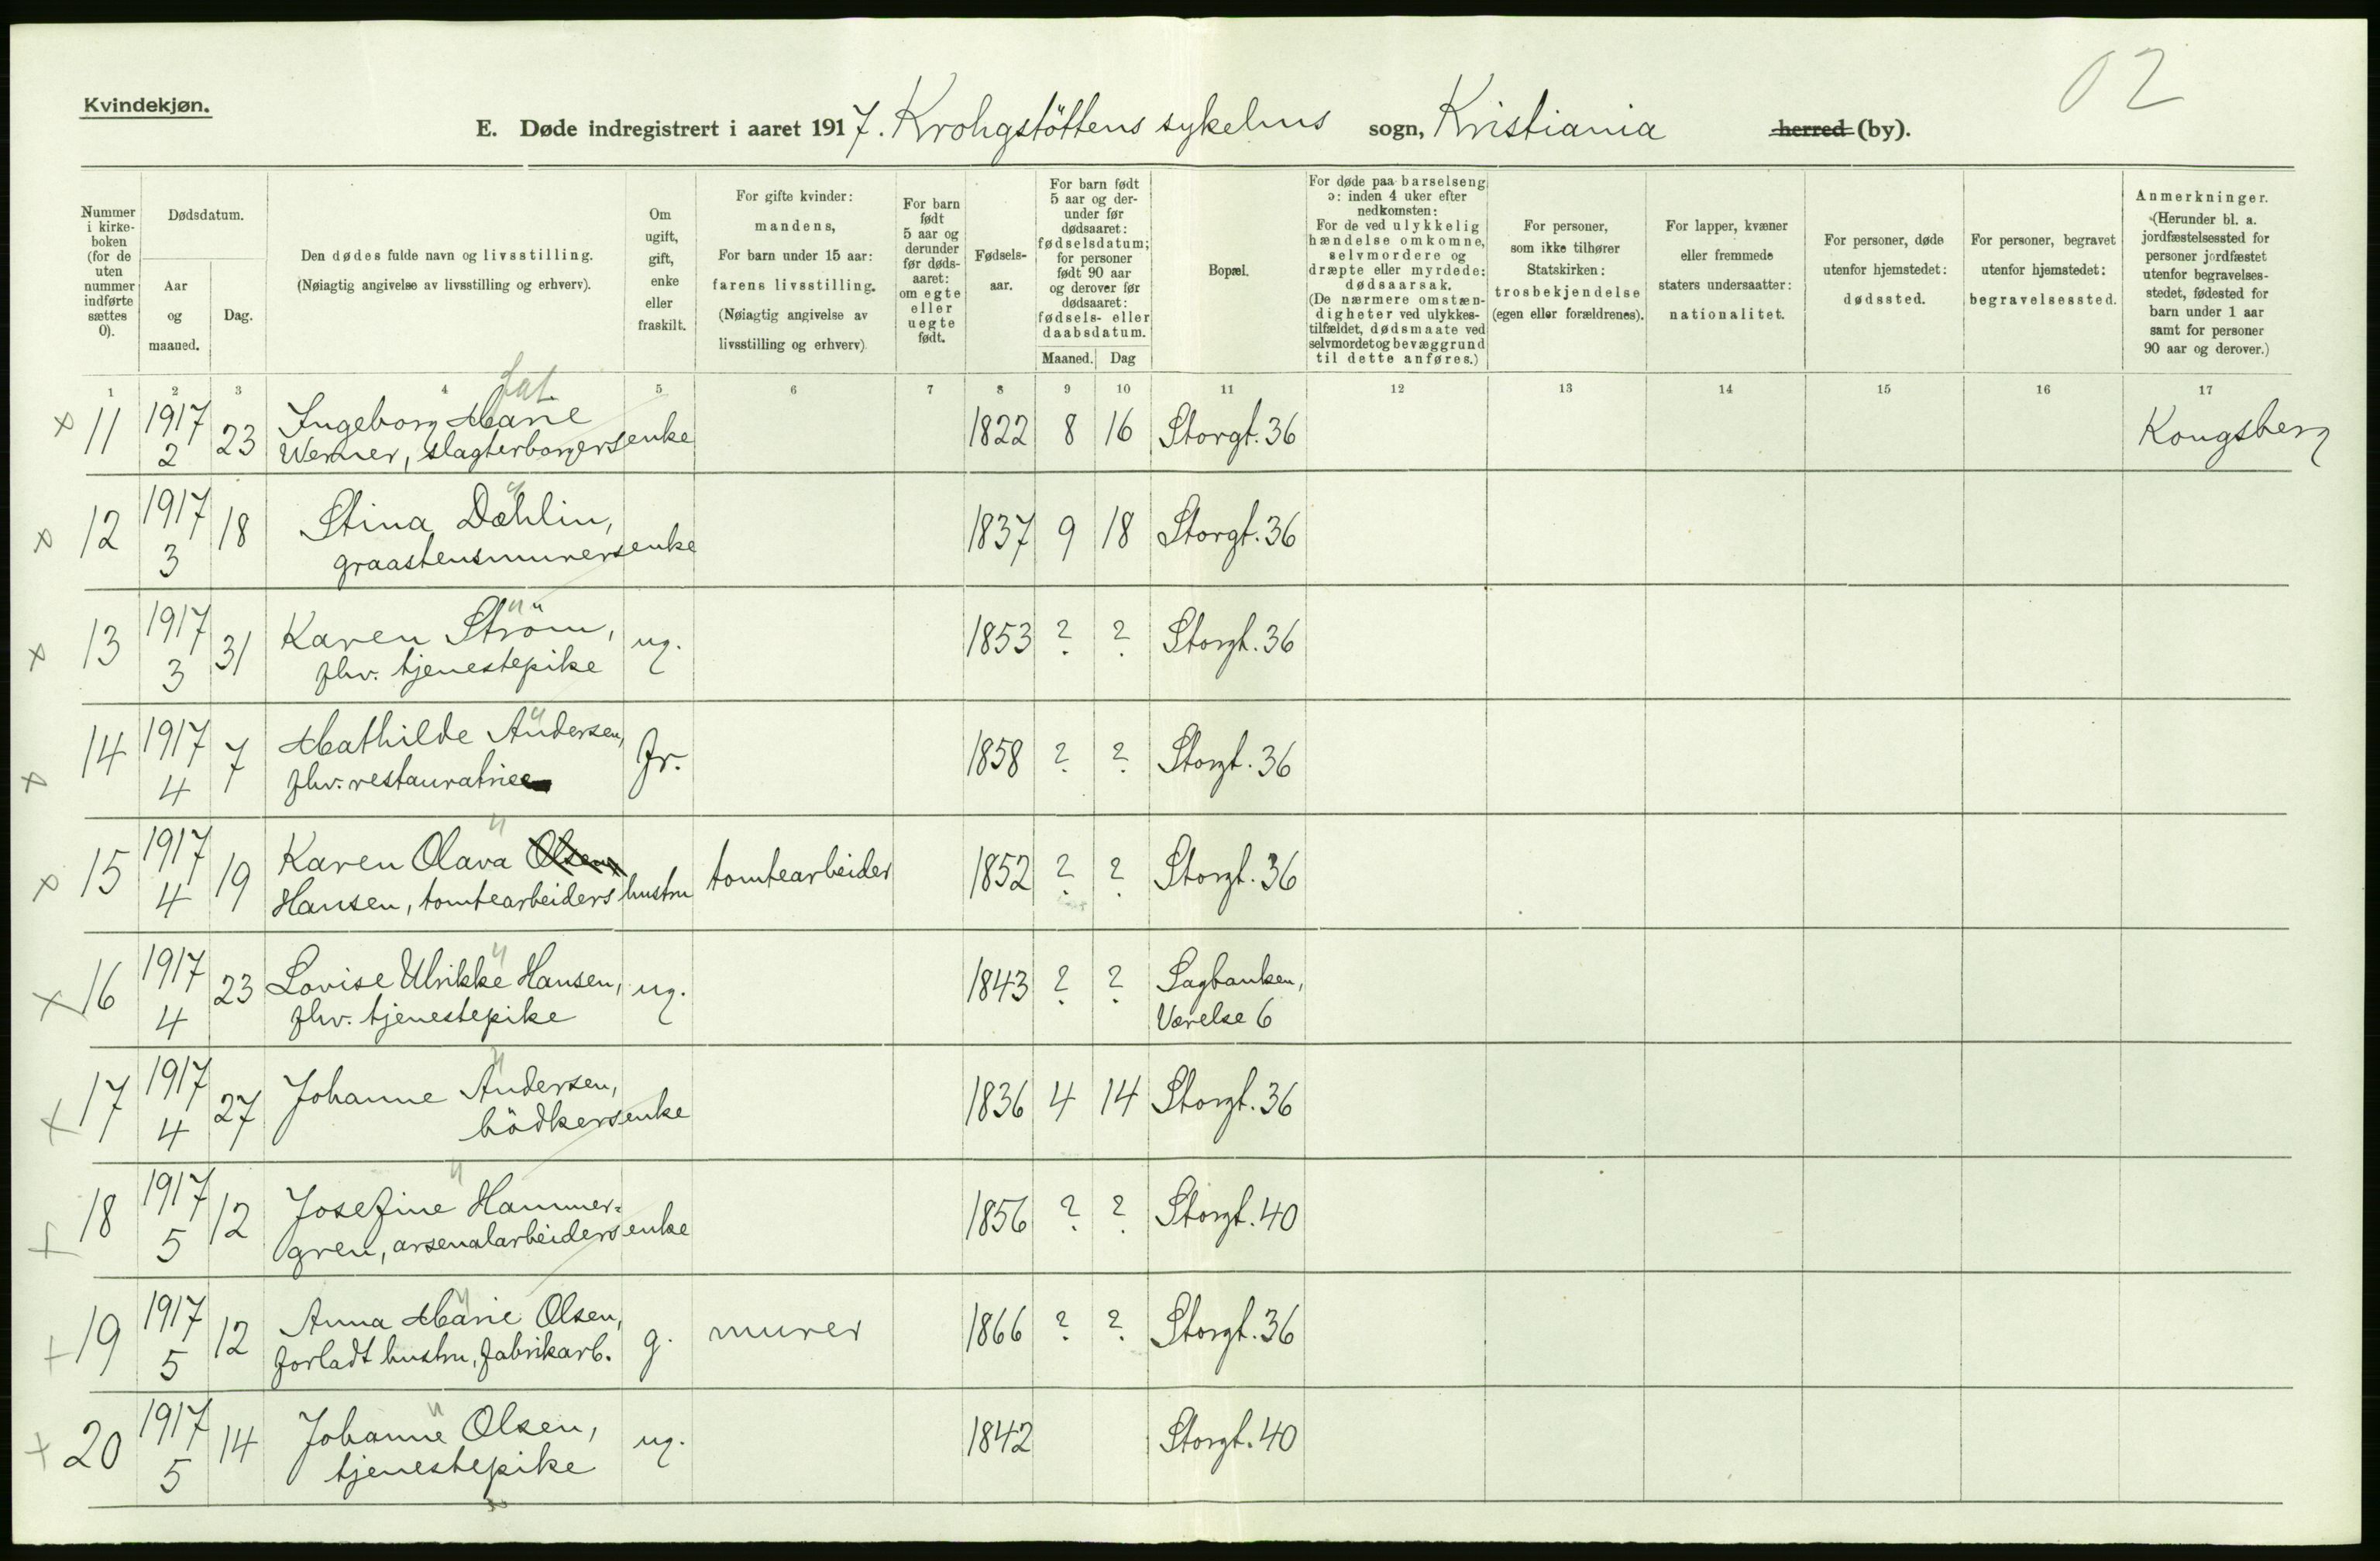 Kvindekjøn.
02
E. Døde indregistrert i aaret 1917. Krohgstöttens sykehus sogn, Kristiania herred (by).
Nummer i kirkeboken (for de uten nummer indførte sættes 0).
Dødsdatum.
Aar og maaned.
Dag.
Den dødes fulde navn og livsstilling.
(Nøiagtig angivelse av livsstilling og erhverv).
Om ugift, gift, enke eller fraskilt.
For gifte kvinder: mandens,
For barn under 15 aar: farens livsstilling.
(Nøiagtig angivelse av livsstilling og erhverv)
For barn født 5 aar og derunder før dødsaaret: om egte eller uegte født.
Fødselsaar.
For barn født 5 aar og derunder før dødsaaret: fødselsdatum; for personer født 90 aar og derover før dødsaaret: fødsels- eller daabsdatum.
Maaned. Dag
Bopæl.
For døde paa barselseng ɔ: inden 4 uker efter nedkomsten: For de ved ulykkelig hændelse omkomne, selvmordere og dræpte eller myrdede: dødsaarsak. (De nærmere omstændigheter ved ulykkestilfældet, dødsmaate ved selvmordet og bevæggrund til dette anføres.)
For personer, som ikke tilhører Statskirken: trosbekjendelse (egen eller forældrenes).
For lapper, kvæner eller fremmede staters undersaatter: nationalitet.
For personer, døde utenfor hjemstedet: dødssted.
For personer, begravet utenfor hjemstedet: begravelsessted.
Anmerkninger.
(Herunder bl. a. jordfæstelsessted for personer jordfæstet utenfor begravelsesstedet, fødested for barn under 1 aar samt for personer 90 aar og derover.)
1 2 3 4 5 6 7 8 9 10 11 12 13 14 15 16 17
x 11 1917 2 23 Ingeborg Marie 1822 8 16 Storgt. 36 Kongsberg
Werner, slagterborgersenke
x 12 1917 3 18 Stina Dæhlin, 1837 9 18 Storgt. 36
graastensmurersenke
x 13 1917 3 31 Karen Ström, ug. 1853 ? ? Storgt. 36
fhv. tjenestepike
x 14 1917 4 7 Mathilde Andersen, fr. 1858 ? ? Storgt. 36
fhv. restauratrice
x 15 1917 4 19 Karen Olava Olsen tomtearbeider 1852 ? ? Storgt. 36
Hansen, tomtearbeiders hustru
x 16 1917 4 23 Lovise Ulrikke Hansen, ug. 1843 ? ? Sagbanken,
fhv. tjenestepike Værelse 6
x 17 1917 4 27 Johanne Andersen, 1836 4 14 Storgt. 36
bödkersenke
x 18 1917 5 12 Josefine Hammer= 1856 ? ? Storgt. 40
gren, arsenalarbeidersenke
x 19 1917 5 12 Anna Marie Olsen, g. murer 1866 ? ? Storgt. 36
forladt hustru, fabrikarb.
x 20 1917 5 14 Johanne Olsen, ug. 1842 Storgt. 40
tjenestepike